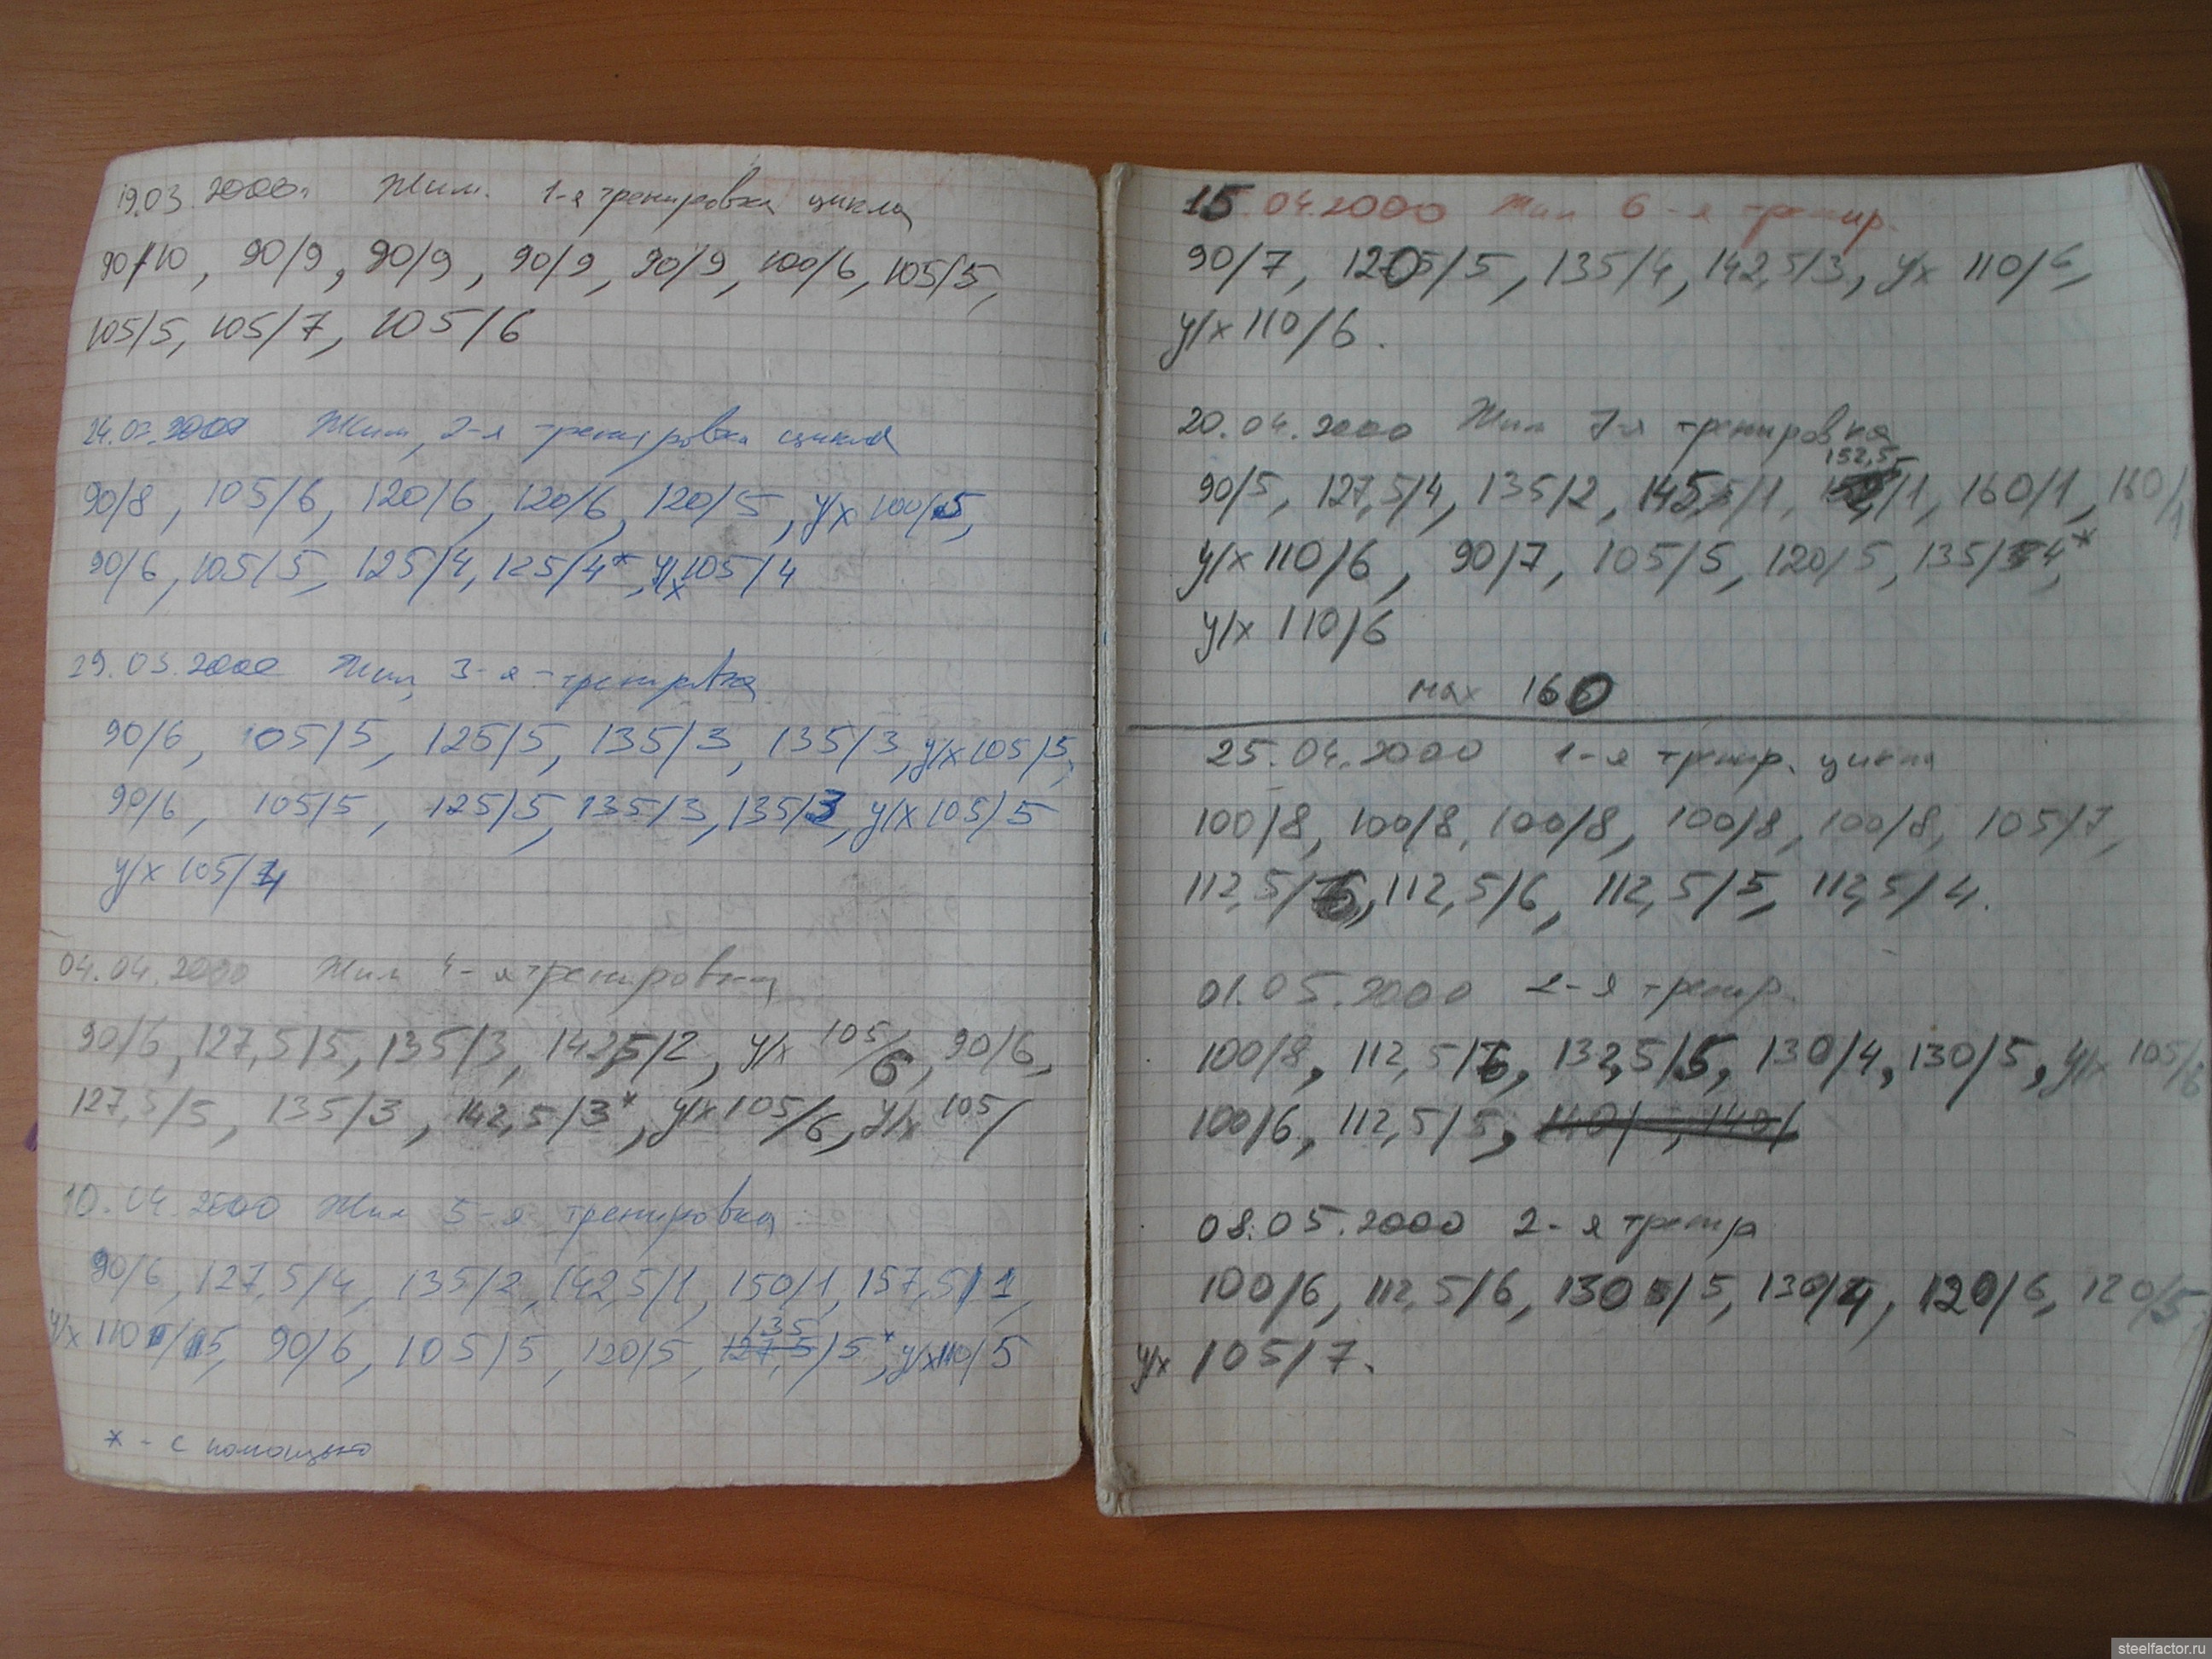 19.03.2000г Жим. 1-я тренировка цикла
90/10, 90/9, 90/9, 90/9, 90/9, 100/6, 105/5,
105/5, 105/7, 105/6
24.03.2000 Жим, 2-я тренировка цикла
90/8, 105/6, 120/6, 120/6, 120/5, у/х 100/5,
90/6, 105/5, 125/4, 125/4*, у/х 105/4
29.03.2000 Жим, 3-я тренировка
90/6, 105/5, 125/5, 135/3, 135/3, у/х 105/5,
90/6, 105/5, 125/5, 135/3, 135/3, у/х 105/5
у/х 105/4
04.04.2000 Жим 4-я тренировка
90/6, 127,5/5, 135/3, 142,5/2, у/х 105/6, 90/6,
127,5/5, 135/3, 142,5/3*, у/х 105/6, у/х 105/
10.04.2000 Жим 5-я тренировка
90/6, 127,5/4, 135/2, 142,5/1, 150/1, 157,5/1,
у/х 110/5, 90/6, 105/5, 120/5, 135/5*, у/х 110/5
* - с помощью
15.04.2000 Жим 6-я тренир.
90/7, 120/5, 135/4, 142,5/3, у/х 110/6,
у/х 110/6.
20.04.2000 Жим 7-я тренировка
90/5, 127,5/4, 135/2, 145/1, 152,5/1, 160/1, 160/1
у/х 110/6, 90/7, 105/5, 120/5, 135/4*,
у/х 110/6
мах 160
25.04.2000 1-я тренир. цикла
100/8, 100/8, 100/8, 100/8, 100/8, 105/7,
112,5/6, 112,5/6, 112,5/5, 112,5/4.
01.05.2000 2-я тренир.
100/8, 112,5/6, 132,5/5, 130/4, 130/5, у/х 105/6
100/6, 112,5/5,
08.05.2000 2-я тренир
100/6, 112,5/6, 130/5, 130/4, 120/6, 120/5,
у/х 105/7.
steelfactor.ru